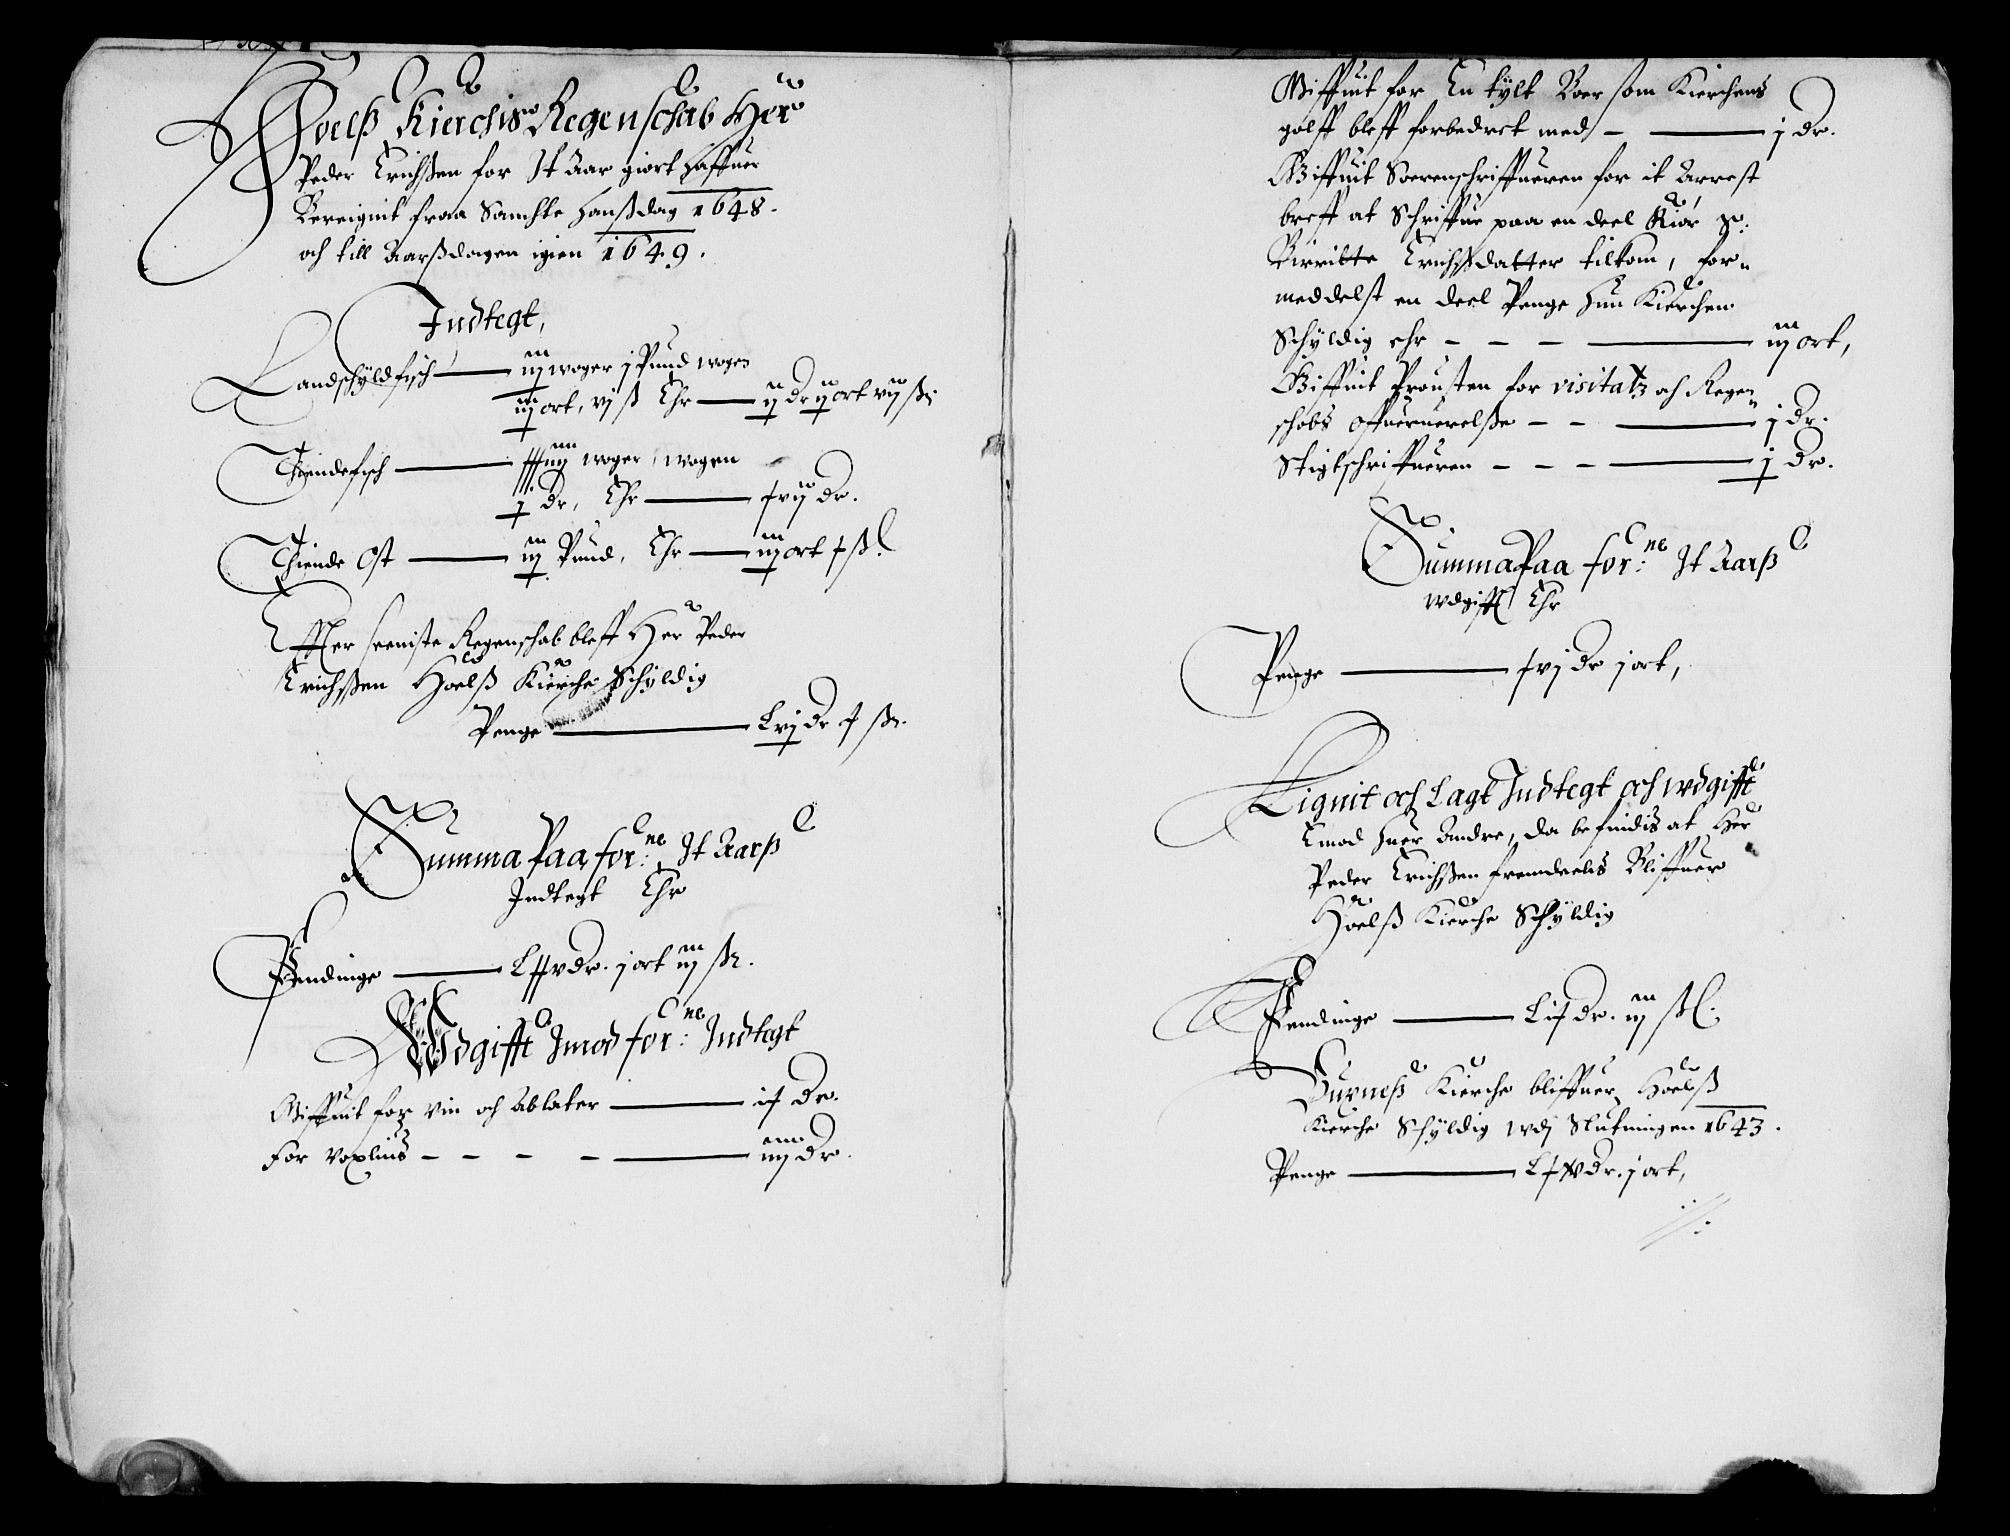 Hoelß Kierchis Regenschab Her
Peder Erichßen for It Aar giort haffuer
Bereignit fraa Sanchte Hanßdag 1648.
och till Aarßdagen igien 1649.
Indtegt,
Landschyldfisch — iij woger j Pund wogen
iiij ort, vj ß Ehr — ij Dr ij ort vij ß.
Thiendefisch — woger, wogen
j Dr, Ehr — xvij Dr.
Thiende Ost — iij Pund, Ehr — iij ort x ß.
Effter seeniste Regenschab bleff Her Peder
Erichßen Hoelß Kierche Schyldig
Penge — Lvj Dr x ß.
Summa Paa for:ne It Aarß
Indtegt Ehr
Pendinge — Lxxv Dr. j ort iij ß.
Wdgifft Imod for:ne Indtegt
Giffuit for vin och ablater — ix Dr.
For voxlius – – – – — iiij Dr.
Giffuit for En tylt Boer som Kierchens
golff bleff forbedret med – — j Dr.
Giffuit Sorenschriffueren for it Arrest
breff at Schriffue paa en deel Kiør S:
Birritte Erichsdatter tilkom, for„
meddelst en deel Penge hun Kierchen
Schyldig ehr – – – — iij ort,
Giffuit Prousten for visitatz och Regen„
schabs offueruerelße – – — j Dr.
Stigtschriffueren – – – — j Dr.
Summa Paa for:ne It Aarß
wdgifft Ehr
Penge — xvj Dr j ort,
Lignit och Lagt Indtegt och wdgifft
Emod huer Andre, da befindis at Her
Peder Erichßen fremdeelis Bliffuer
Hoelß Kierche Schyldig
Pendinge — Lix Dr. iij ß.
Buxneß Kierche bliffuer Hoelß
Kierche Schyldig wdj Slutningen 1643.
Penge — Lxxv Dr. j ort,